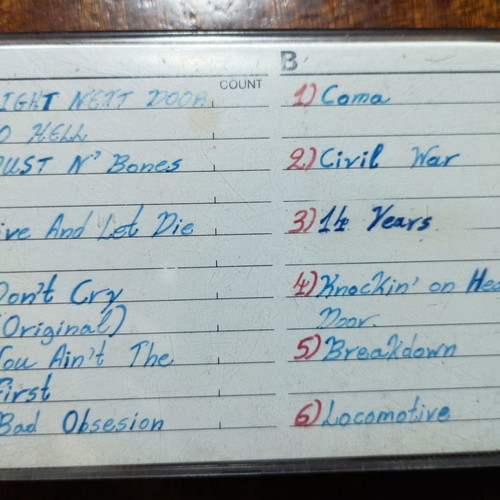 IGHT NEXT DOOR
O HELL
UST N' Bones
ive And Let Die
Don't Cry
(Original)
You Ain't The
First
Bad Obsesion
COUNT
B
1) Coma
2) Civil War
3) 14 Years
4) Knockin' on Hea
Door.
5) Breakdown
6) Locomotive